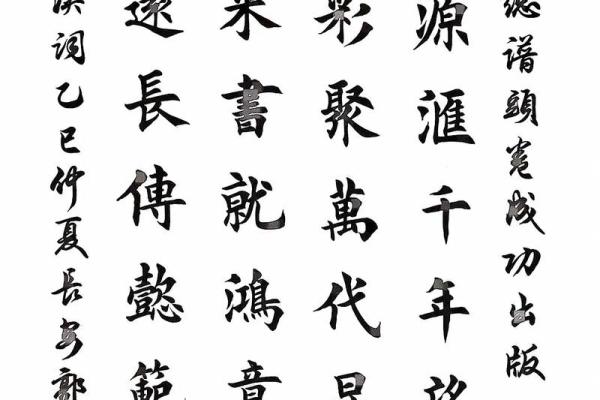 總譜頭卷成功出版
源滙千年望
彩聚萬代
書就鴻
遠長傳懿範
詞乙巳仲夏長安郭